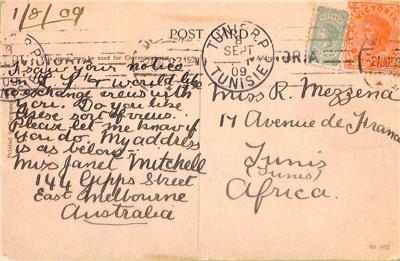 1/8/09
POST CARD
I saw your notice
in & would like
to exchange views with
you. Do you like
these sort of views.
Please let me know if
you do. My address
is as below.
Miss Janet Mitchell
144 Gipps Street
East Melbourne
Australia
TUNIS R.P.
SEPT
09
TUNISIE
VICTORIA
Miss R. Mezzena
17 Avenue de France
Tunis
(Tunis)
Africa.